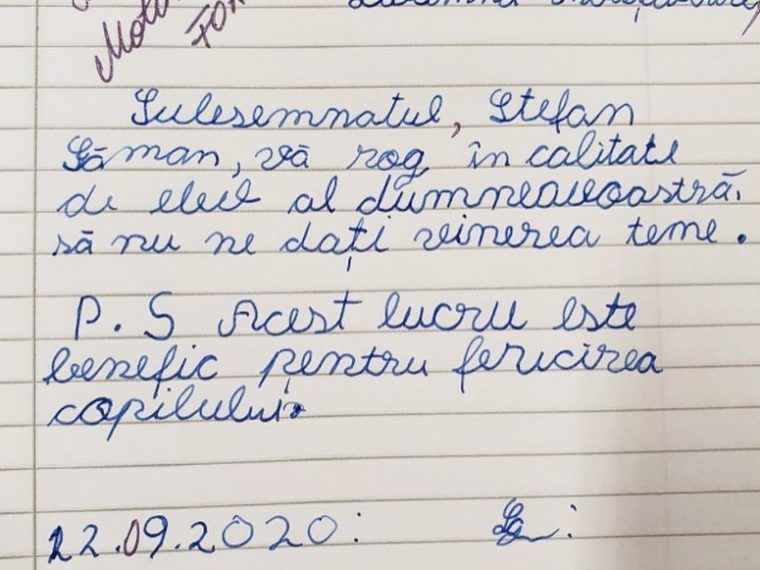 Sulesemnatul, Stefan
Găman, vă rog în calitate
de elev al dumneavoastră,
să nu ne dați vinerea teme.
P.S Acest lucru este
benefic pentru fericirea
copilului.
22.09.2020: